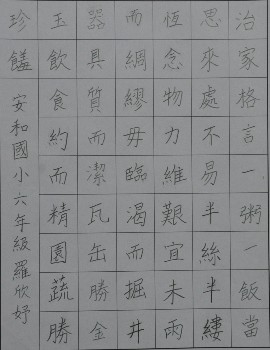 治家格言一粥一飯當
思來處不易半絲半縷
恆念物力維艱宜未雨
而綢繆毋臨渴而掘井
器具質而潔瓦缶勝金
玉飲食約而精園蔬勝
珍饈 安和國小六年級羅欣妤